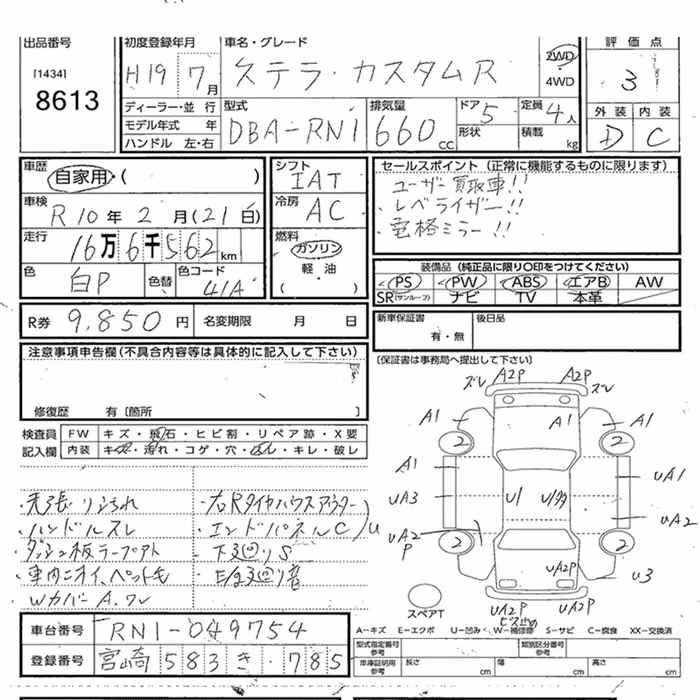 出品番号 初度登録年月 車名・グレード 評価点
[1434] H19 7月 ステラ・カスタムR 2WD 4WD 3
8613
ディーラー・並行 型式 排気量 ドア 5 定員 4人 外装 内装
モデル年式 年 DBA-RN1 660cc 形状 積載 kg D C
ハンドル 左・右
車歴 自家用・( ) シフト IAT セールスポイント (正常に機能するものに限ります)
車検 R10年2月(21日) 冷房 AC ・ユーザー買取車!!
・レベライザー!!
走行 16万6千562km 燃料 ガソリン 軽・油 ・電格ミラー!!
色 白P 色替 色コード 41A 装備品 (純正品に限り○印をつけてください)
PS PW ABS エアB AW
SR(サンルーフ) ナビ TV 本革
R券 9,850円 名変期限 月 日 新車保証書 有・無 後日品
注意事項申告欄(不具合内容等は具体的に記入して下さい) (保証書は事務局へ提出して下さい)
修復歴 有〔箇所 〕
検査員 FW キズ・飛石・ヒビ割・リペア跡・X要
記入欄 内装 キズ・汚れ・コゲ・穴・ハレ・キレ・破レ
ズレ A2P ズレ
A1 A1 A1
2 2
A1 UA1
UA3 U1 UA2
UA2P
2 2
UA2P U3
UA2P
ビス止め
スペアT
・天張り汚れ ・右Rタイヤハウスアウター
・ハンドルスレ ・エンドパネルC/U
・ダッシュ板テープアト ・下廻りS
・車内ニオイ、ペット毛
Wカバー A.ワレ
車台番号 RN1-049754 A-キズ E-エクボ U-凹み W-補修跡 S-サビ C-腐食 XX-交換済
登録番号 宮崎 583 き・785 型式指定番号 参考 類別区分番号 参考
車庫証明用 参考 長さ cm 幅 cm 高さ cm